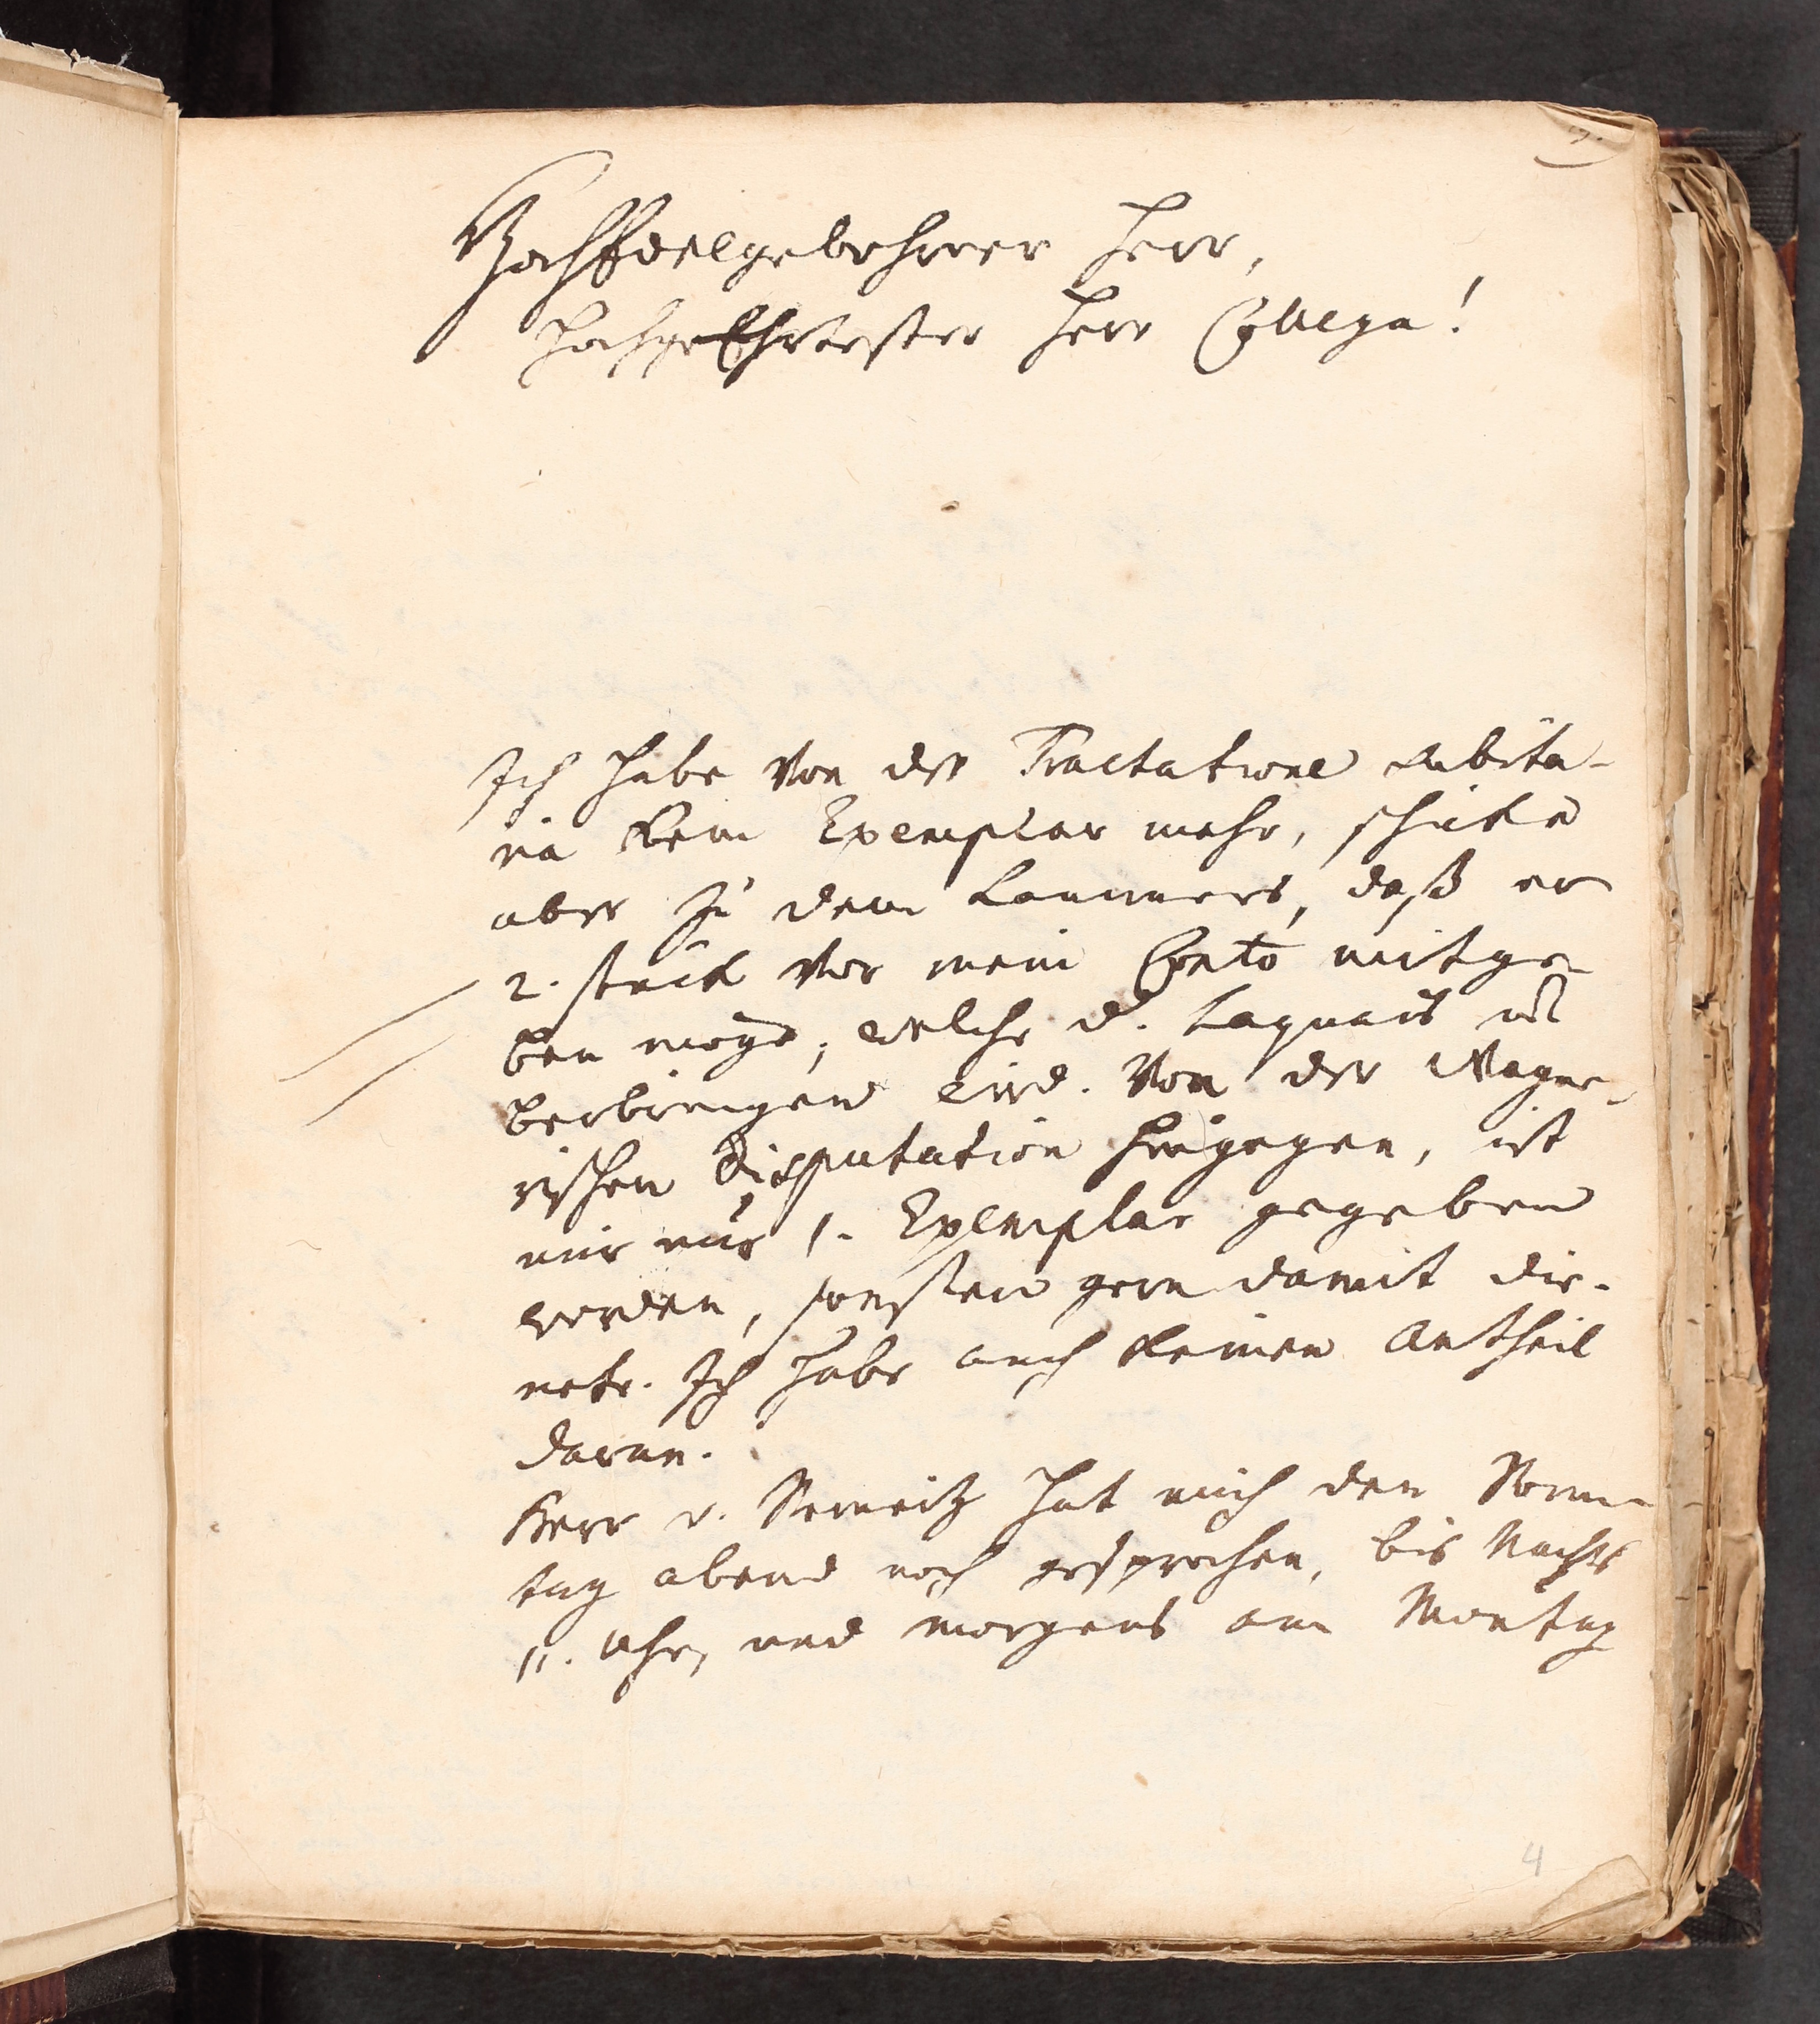 HochEdelgebohrner Herr,
HochgeEhrtester Herr Collega!
Ich habe von der Tractatione subita-
nia kein Exemplar mehr, schicke
aber zu dem Lammers, daß er
2. stück vor mein Conto mitge-
ben möge, welche d. Laquais
berbringen wird. Von der Wagne-
rischen Disputation hingegen, ist
mir nur 1. Exemplar gegeben
worden, sonsten gern damit die-
nete. Ich habe auch keinen Antheil
daran.
Herr v. hat mich den Sonn-
tag abend noch gesprochen, bis Nachts
11. Uhr, und morgens am Montag
4